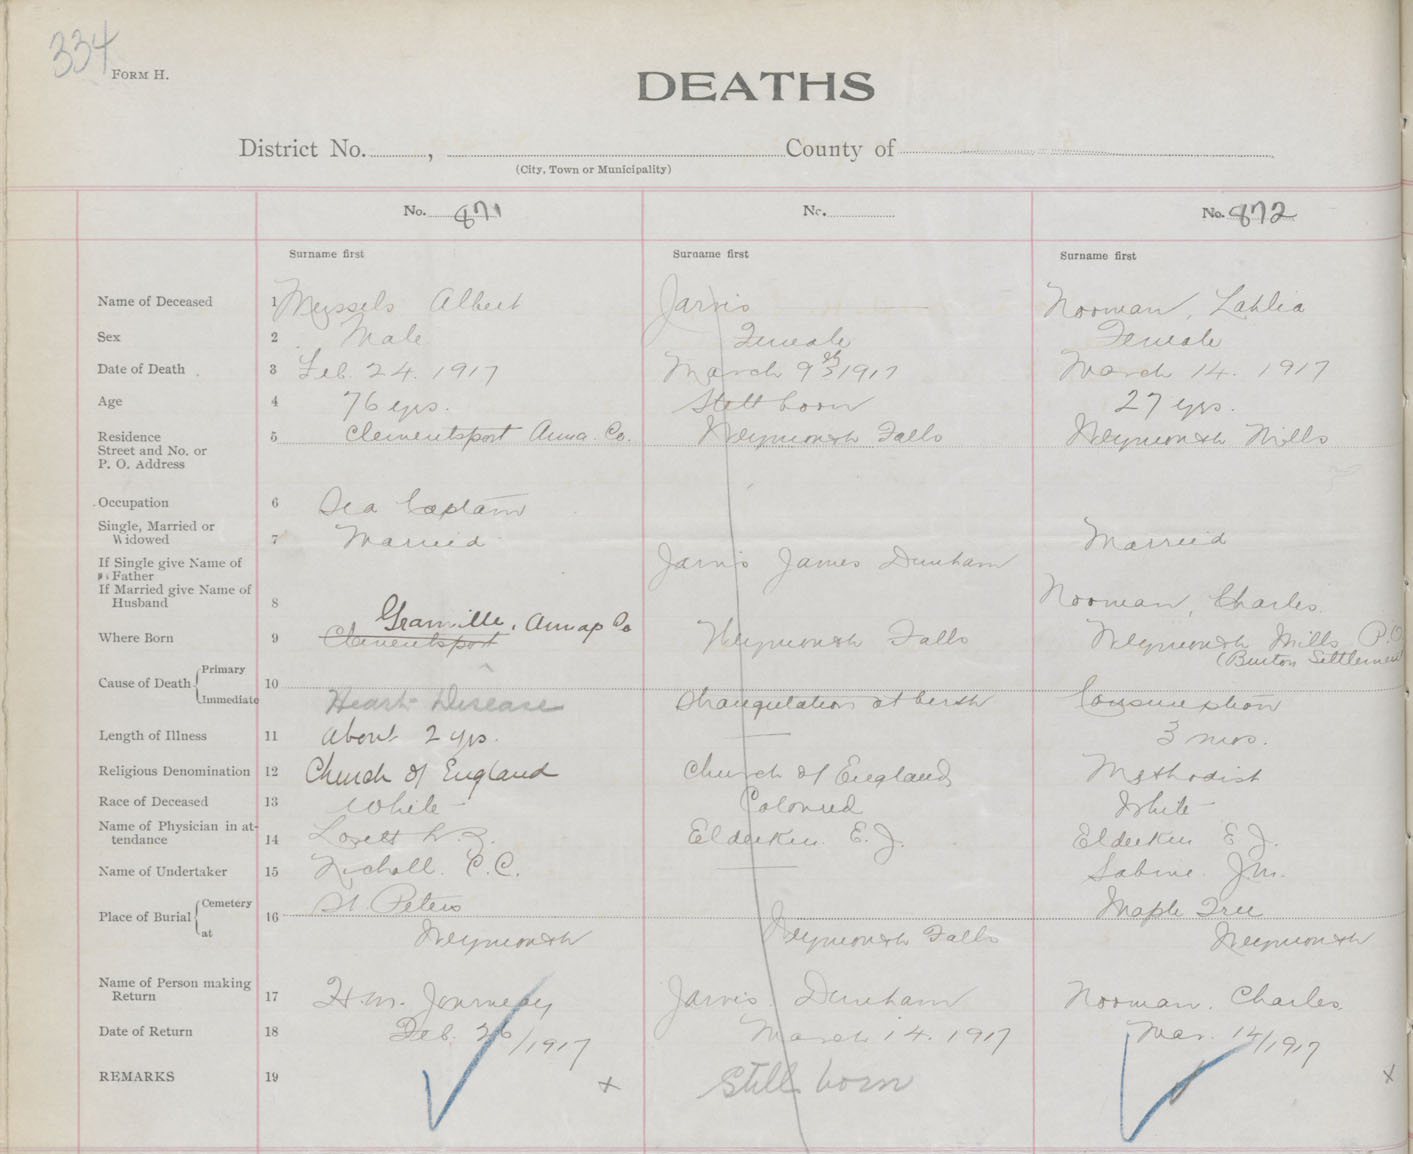 334
FORM H.
DEATHS
District No. , County of
(City, Town or Municipality)
No. 871 No. No. 872
Surname first Surname first Surname first
Name of Deceased 1 Albert Jarvis Norman, Lahlia
Sex 2 Male Female Female
Date of Death 3 Feb. 24. 1917 March 9th 1917 March 14. 1917
Age 4 76 yrs. Still born 27 yrs.
Residence 5 Clementsport Anna. Co. Weymouth Falls Weymouth Mills
Street and No. or
P. O. Address
Occupation 6 Sea Captain
Single, Married or
Widowed 7 Married Married
If Single give Name of
Father Jarvis James Dunham
If Married give Name of
Husband 8 Norman, Charles.
Granville, Annap Co
Where Born 9 Clementsport Weymouth Falls Weymouth Mills P.O.
(Burton Settlement
Cause of Death Primary 10
Immediate Heart Disease Strangulation at birth Consumption
Length of Illness 11 About 2 yrs. — 3 mos.
Religious Denomination 12 Church of England Church of England Methodist
Race of Deceased 13 White Colored White
Name of Physician in at-
tendance 14 Lovett Elderkin E. J. Elderkin E. J.
Name of Undertaker 15 Nicholl. C. C. — Sabine. J.M.
Place of Burial Cemetery 16 St Peters Maple Tree
at Weymouth Weymouth Falls Weymouth
Name of Person making
Return 17 H.M. Journeay Jarvis. Dunham Norman. Charles.
Date of Return 18 Feb. 26/1917 March 14. 1917 Mar. 14/1917
REMARKS 19 x Still born x